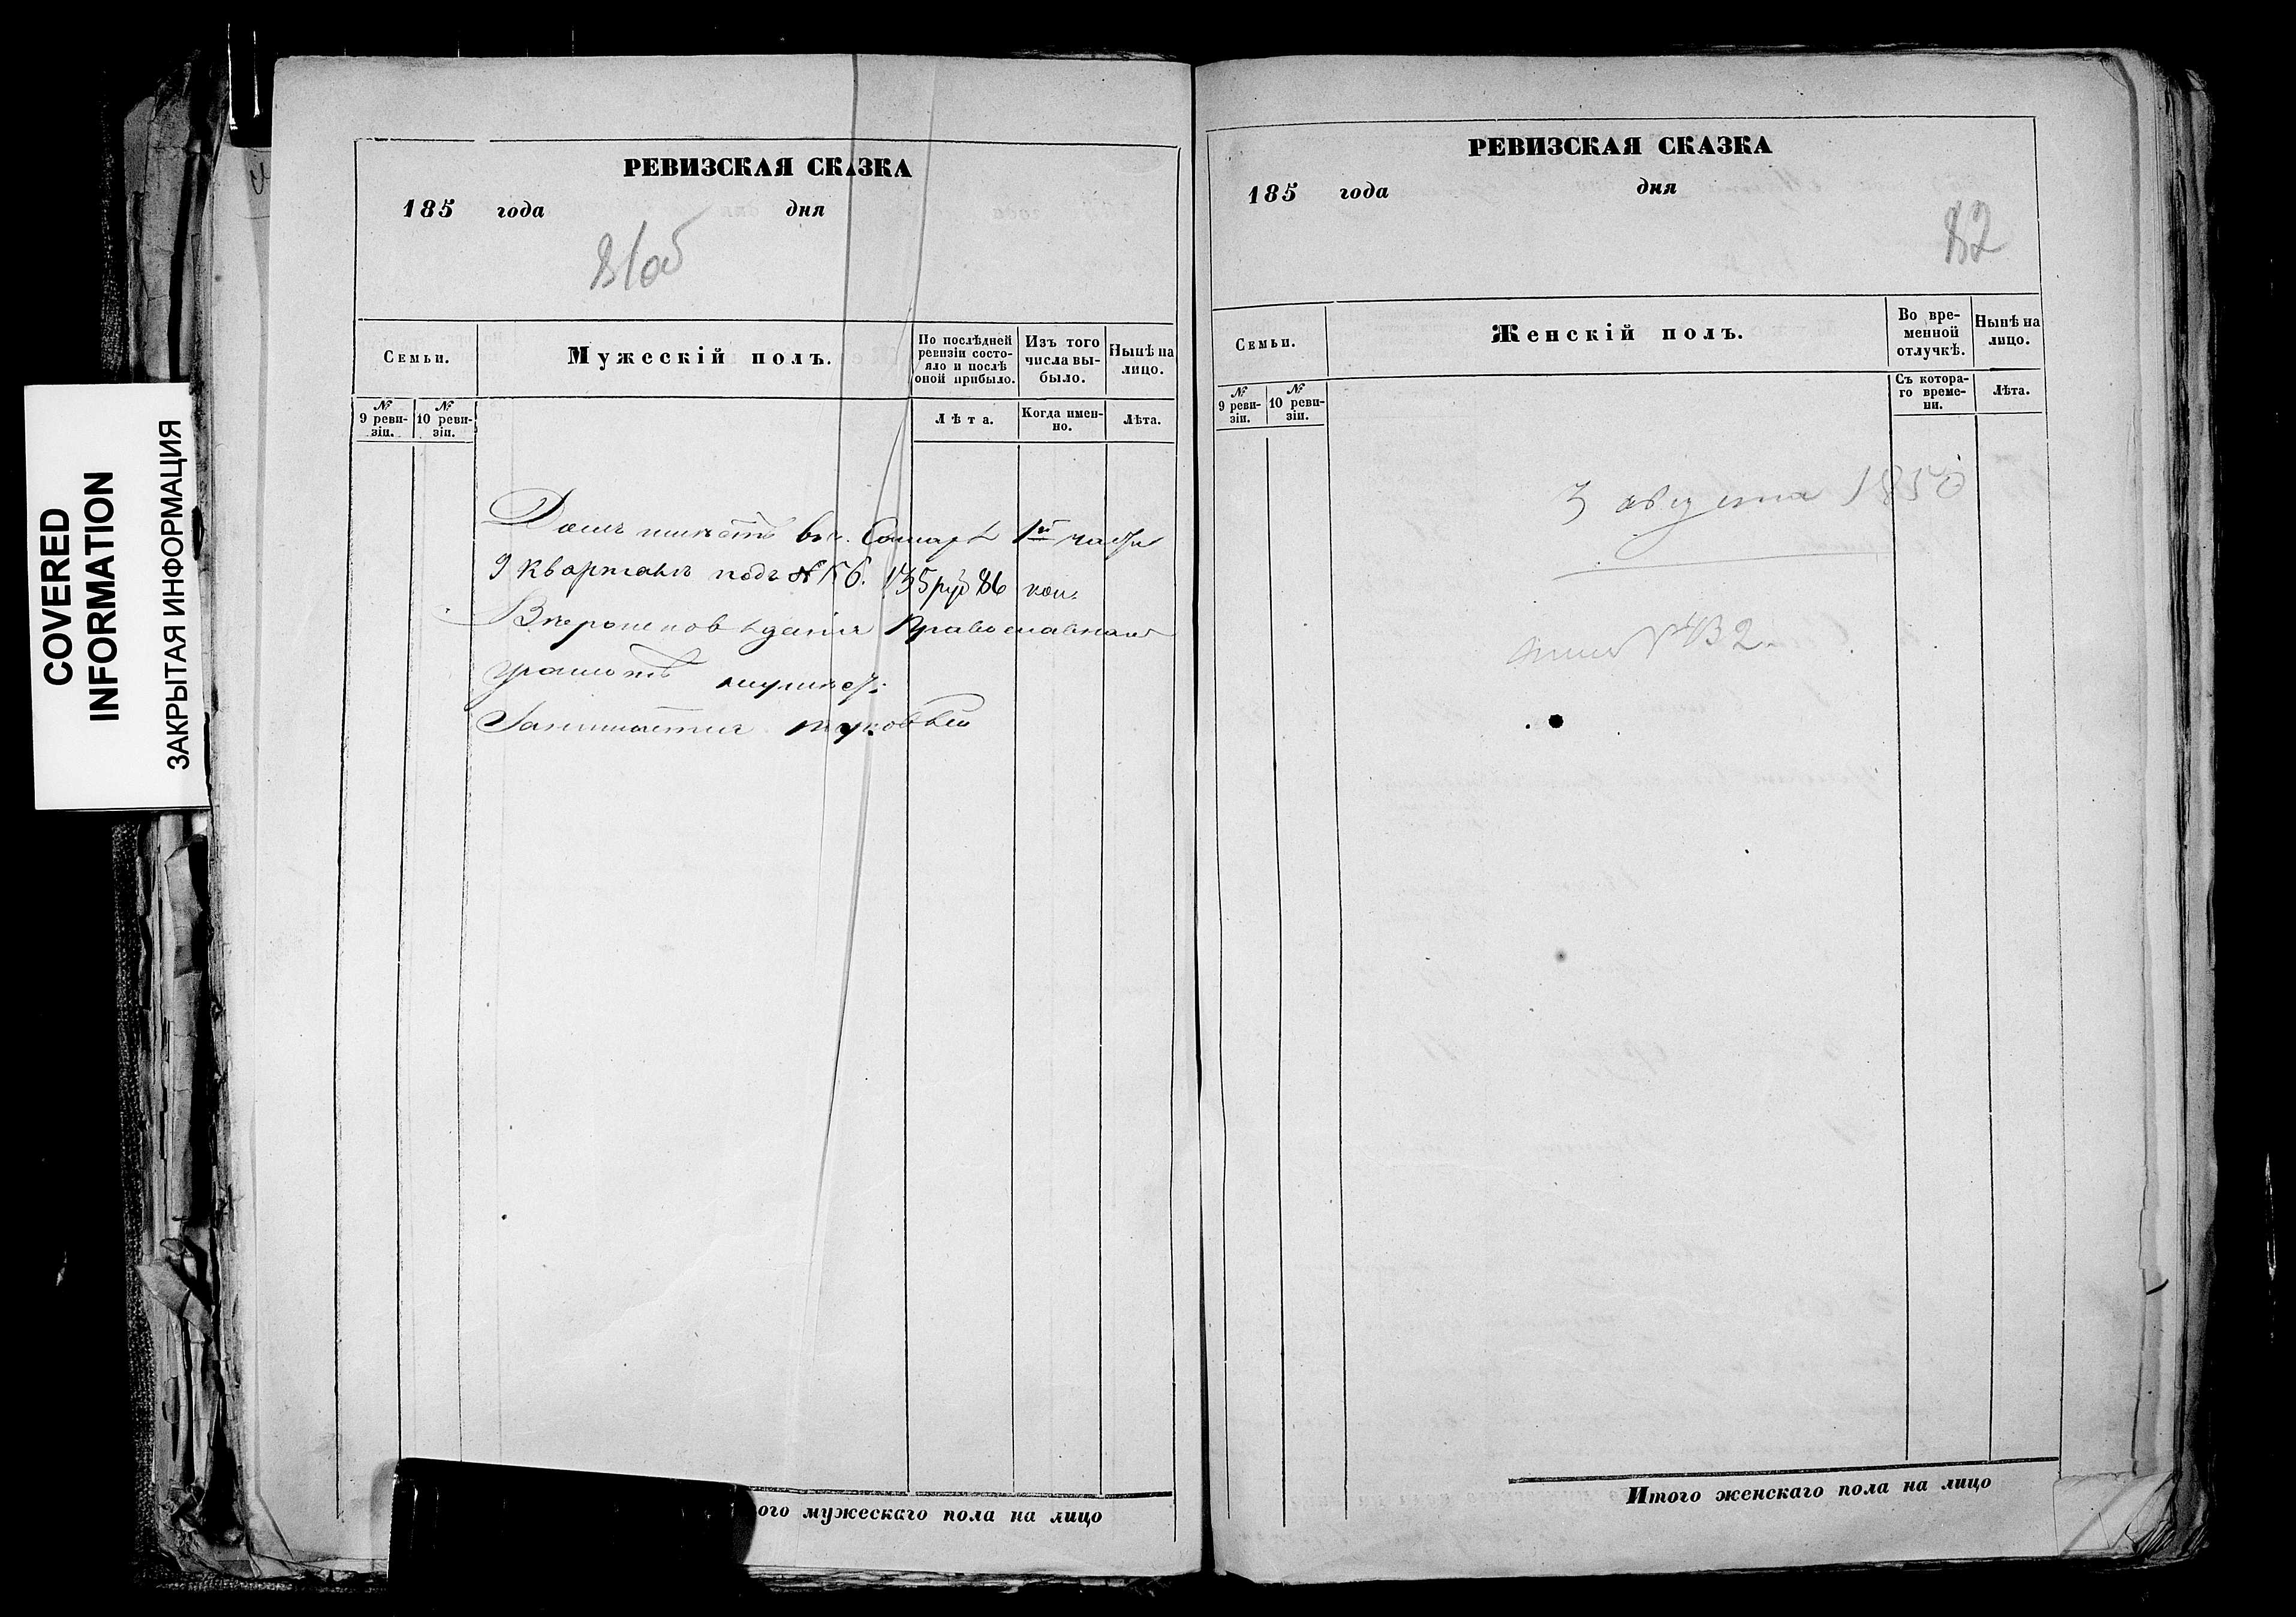 COVERED
INFORMATION
ЗАКРЫТАЯ ИНФОРМАЦИЯ
РЕВИЗСКАЯ СКАЗКА
185 года дня
81об
Семьи.
Мужескій полъ.
По послѣдней ревизіи состо-
яло и послѣ
оной прибыло.
Изъ того
числа вы-
было.
Нынѣ на
лицо.
№
9 реви-
зіи.
№
10 реви-
зіи.
Лѣта.
Когда имен-
но.
Лѣта.
Домъ имѣетъ въ г. Самарѣ 1й части
9 кварталѣ подъ № 135 руб 86 коп.
Вѣроисповѣданія Православнаго
грамотѣ
Занимается торговлей
огo мужескаго пола на лицо
РЕВИЗСКАЯ СКАЗКА
185 года дня
82
Семьи.
Женскій полъ.
Во вре-
менной
отлучкѣ.
Нынѣ на
лицо.
№
9 реви-
зіи.
№
10 реви-
зіи.
Съ котора-
го време-
ни.
Лѣта.
3 августа 1850
№ 432
Итого женскаго пола на лицо